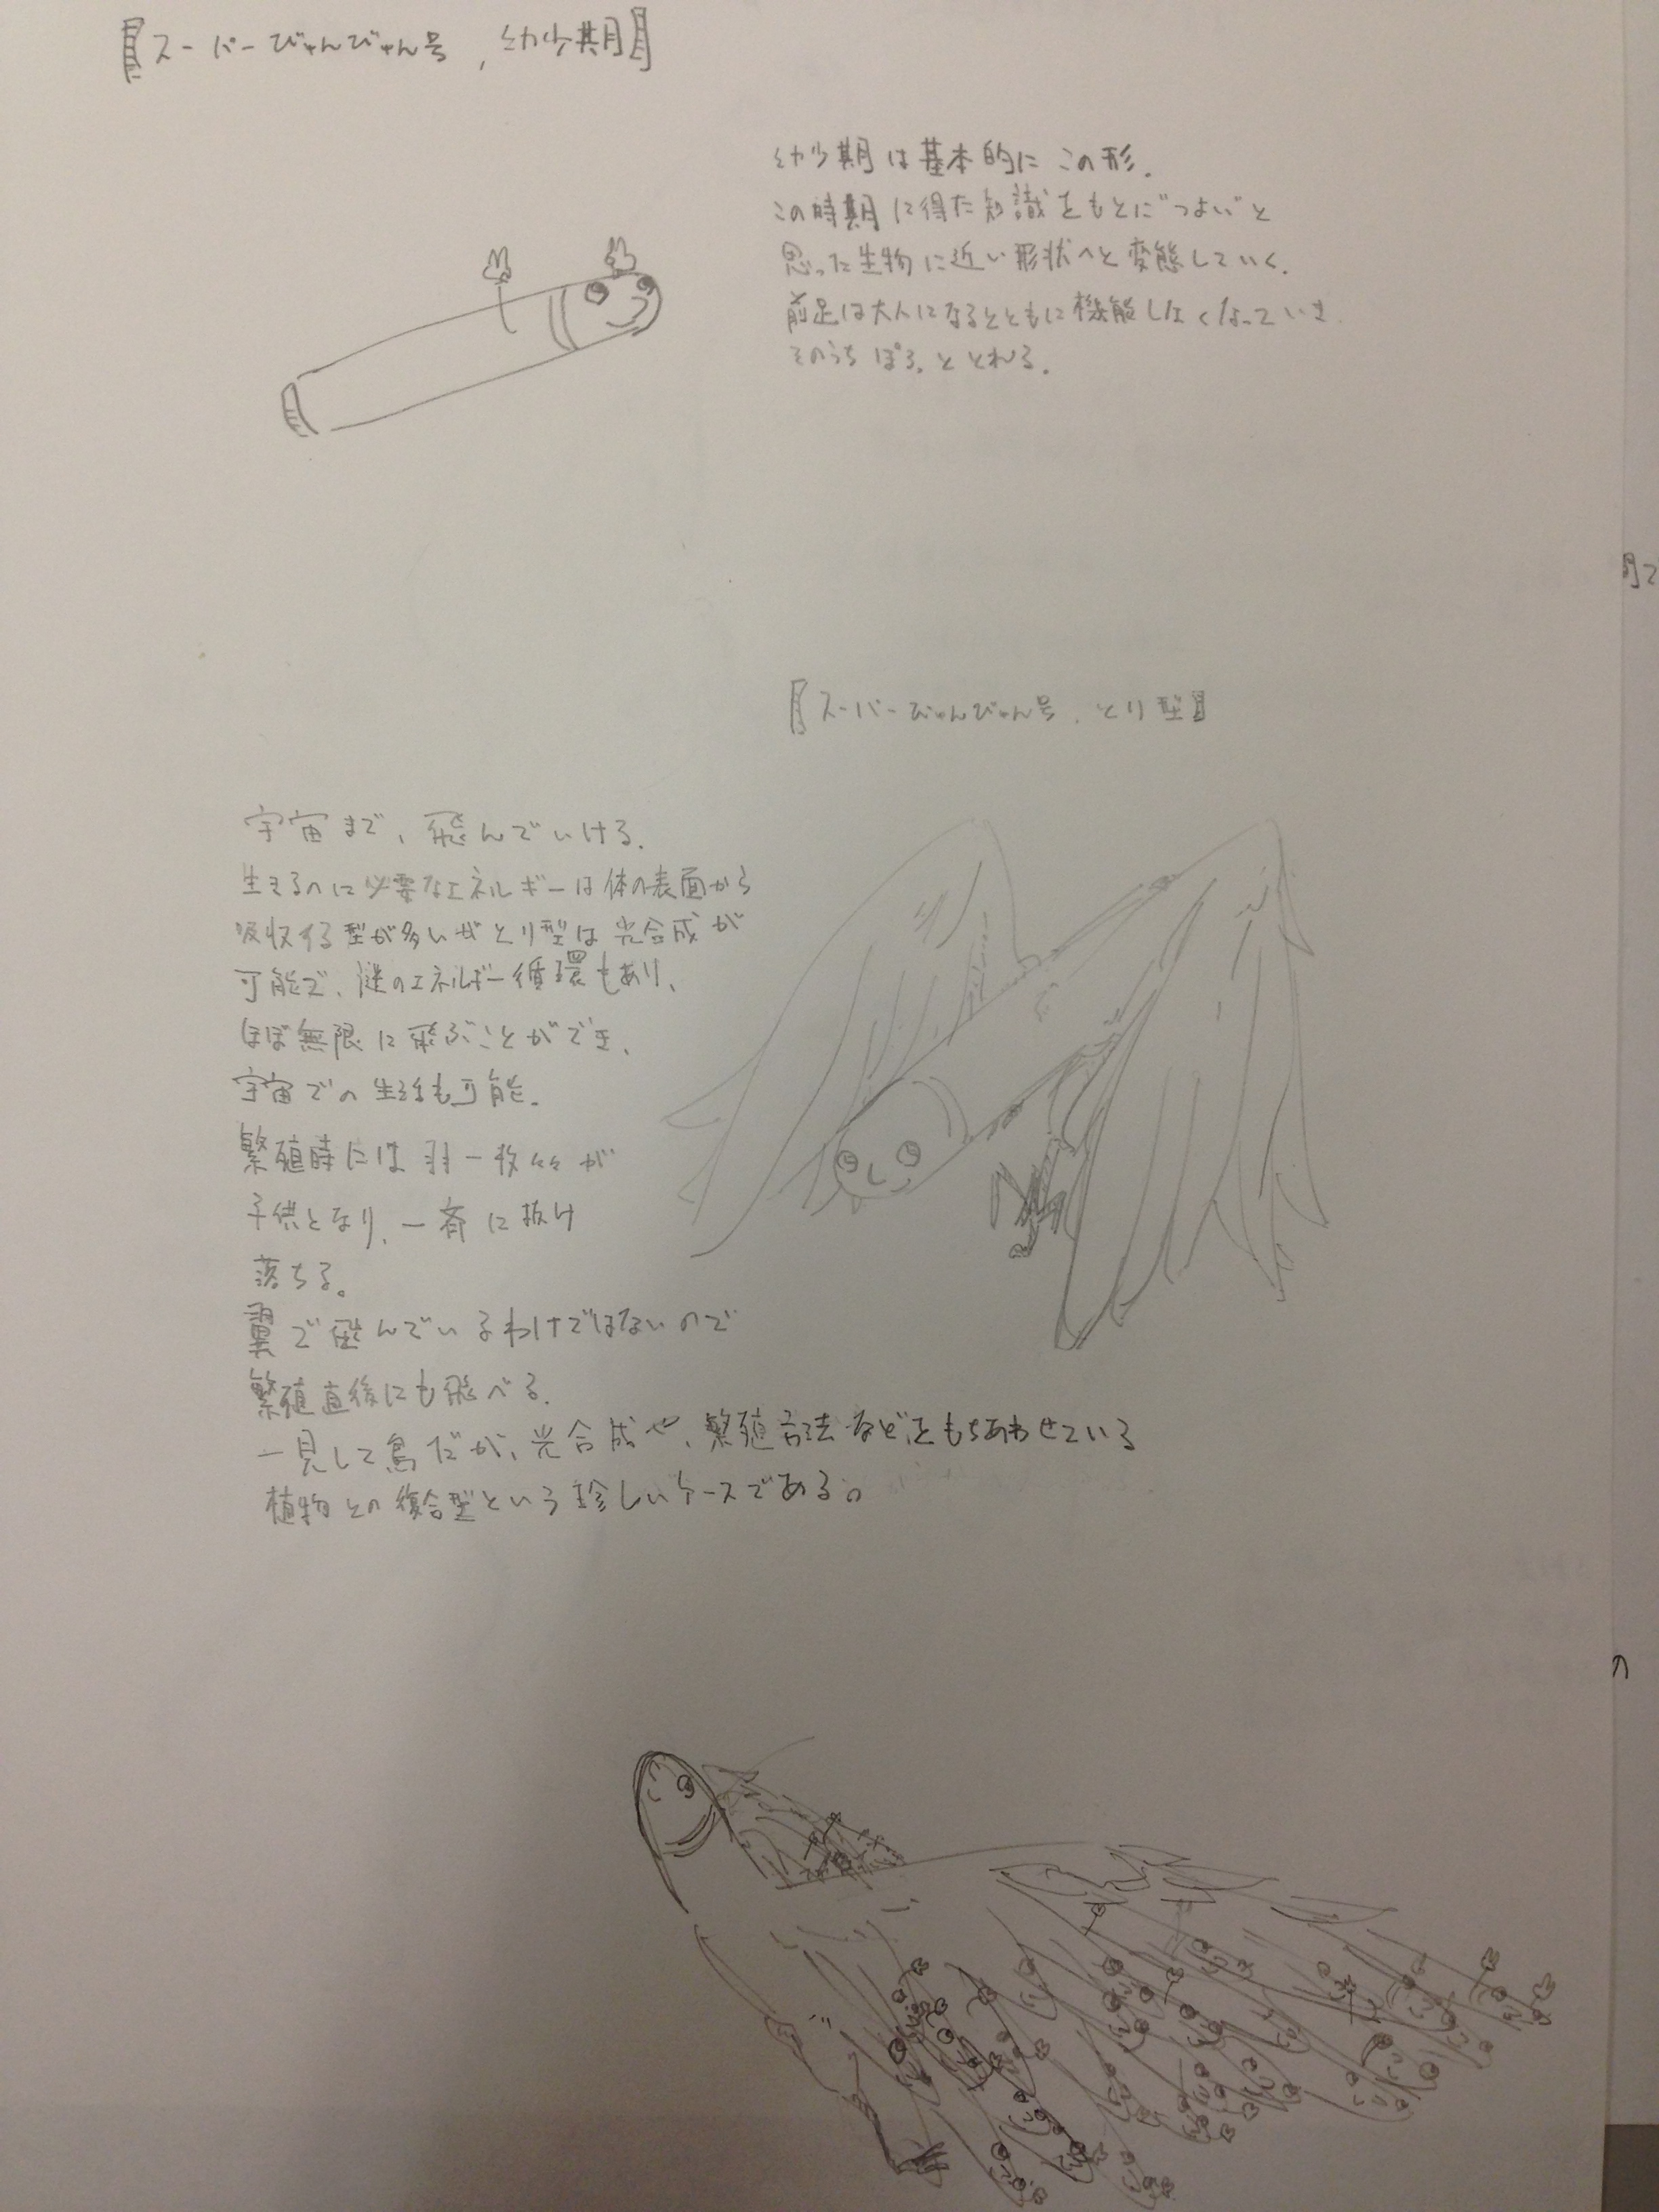 【スーパーびゅんびゅん号、幼少期】
幼少期は基本的にこの形.
この時期に得た知識をもとに"つよい"と
思った生物に近い形状へと変態していく.
前足は大人になるとともに機能しなくなっていき
そのうちぽろっととれる.
【スーパーびゅんびゅん号、とり型】
宇宙まで、飛んでいける.
生きるのに必要なエネルギーは体の表面から
吸収する型が多いがとり型は光合成が
可能で、謎のエネルギー循環もあり、
ほぼ無限に飛ぶことができ、
宇宙での生活も可能.
繁殖時には羽一枚々々が
子供となり、一斉に抜け
落ちる。
翼で飛んでいるわけではないので
繁殖直後にも飛べる.
一見して鳥だが、光合成や、繁殖方法などをもちあわせている
植物との複合型という珍しいケースである。
の